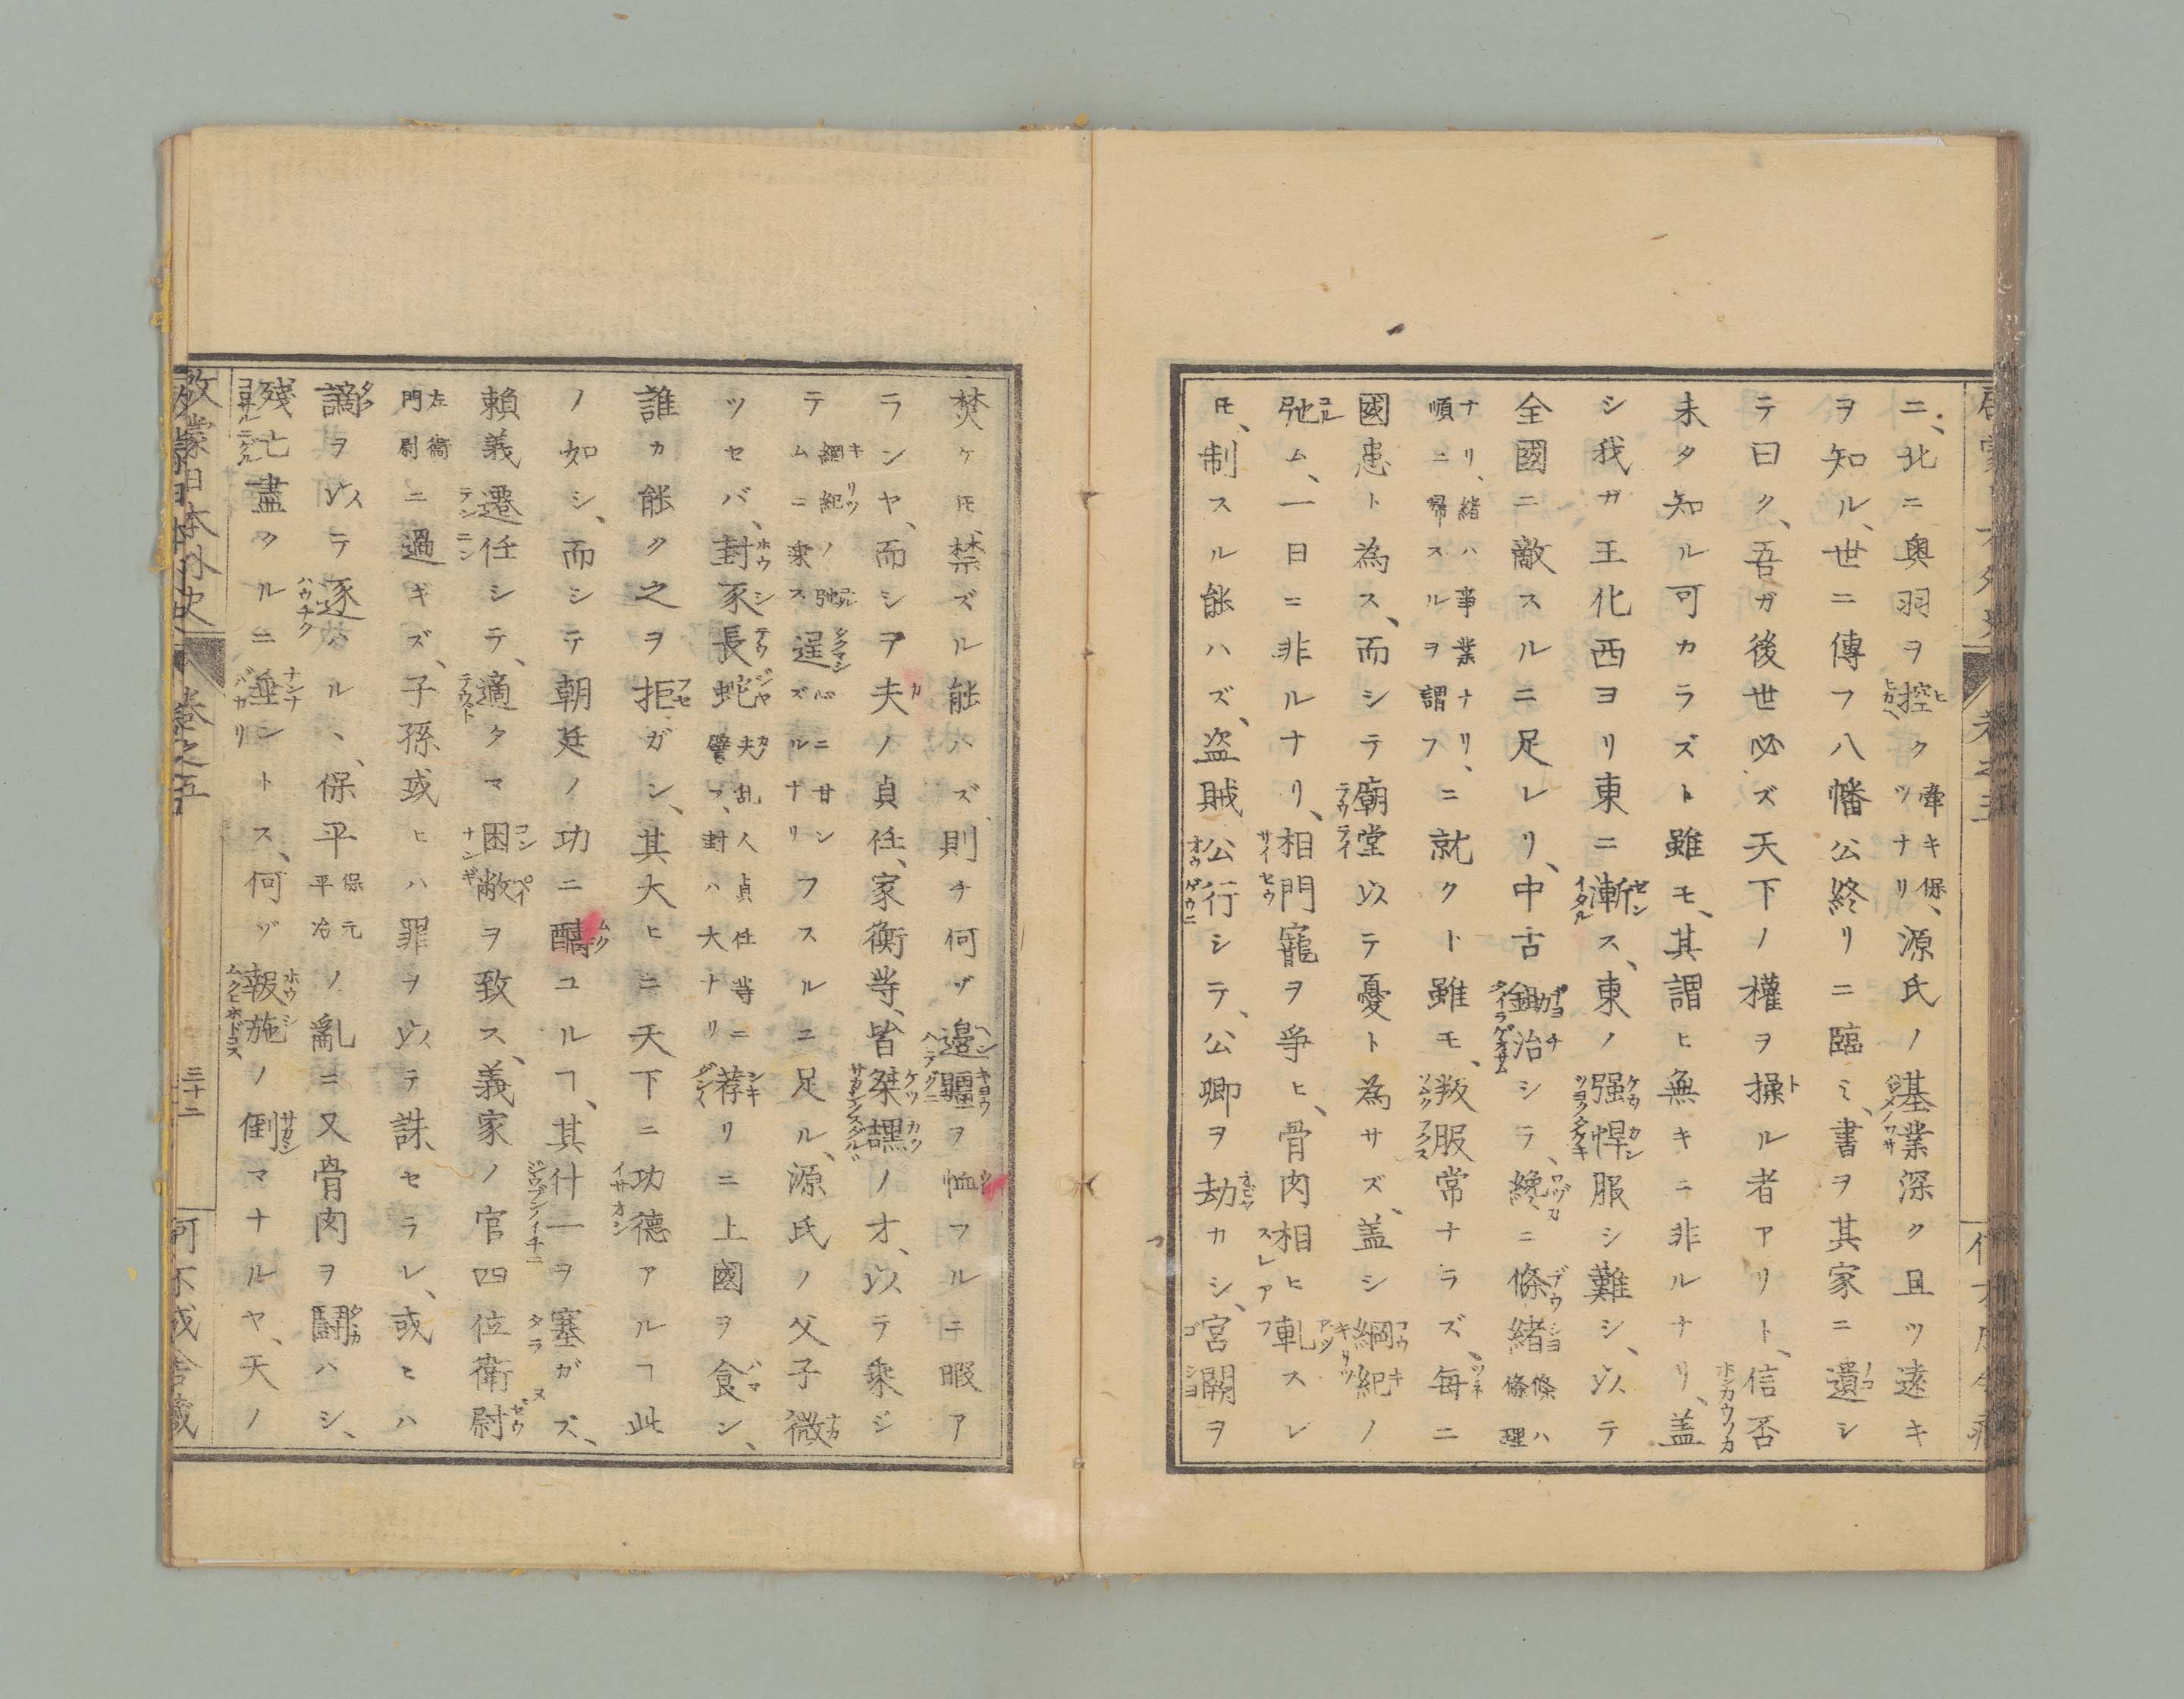 ニ、北ニ奥羽ヲ控クツナキ牽キ保ナリ、源氏ノ基業深ク且ツ遠キ
ヲ知ル、世ニ傳フ八幡公終リニ臨ミ、書ヲ其家ニ遺シ
テ曰ク、吾ガ後世必ズ天下ノ權ヲ操ル者アリト、信否
未タ知ル可カラズト雖モ、其謂ヒ無キニ非ルナリ、蓋
シ我ガ王化西ヨリ東ニ漸ス、東ノ强悍服シ難シ、以テ
全國ニ敵スルニ足レリ、中古鋤治シテ、纔ニ條緒條ハ條理
ナリ、緒ハ事業ナリ、順ニ帰スルヲ謂フニ就クト雖モ、叛服常ナラズ、毎ニ
國患ト為ス、而シテ廟堂以テ憂ト為サズ、蓋シ綱紀ノ
弛ム、一日ニ非ルナリ、相門寵ヲ爭ヒ、骨肉相ヒ軋スレ
𪜈、制スル能ハズ、盗賊公行シテ、公卿ヲ劫カシ、宮闕ヲ
焚ケ𪜈、禁ズル能ハズ、則チ何ゾ邊疆ヲ恤フルニ暇ア
ランヤ、而シヲ夫ノ貞任、家衡等、皆桀黠ノ才、以テ乗ジ
テ綱紀ノ弛ムニ乗ス逞心ニ甘ンズルナリフスルニ足ル、源氏ノ父子微
ツセバ、封豕長蛇夫乱人貞任等ニ譬フ、封ハ大ナリ荐リニ上國ヲ食ン、
誰カ能ク之ヲ拒ガン、其大ヒニ天下ニ功德アルヿ此
ノ如シ、而シテ朝廷ノ功ニ醻ユルヿ、其什一ヲ塞ガズ、
頼義遷任シテ、適タマ困敝ヲ致ス、義家ノ官四位衛尉
左衛門尉ニ過ギズ、子孫或ヒハ罪ヲ以テ誅セラレ、或ヒハ
謫ヲ以テ逐ハル、保平保元平治ノ亂ニ又骨肉ヲ鬪ハシ、
殘亡盡クルニ垂ントス、何ゾ報施ノ倒マナルヤ、天ノ
啓蒙日本外史 卷之五 三十二 可不成舎蔵